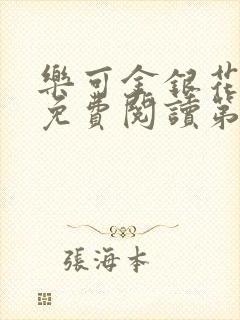 樂可金銀花
免費閱讀第
張海本